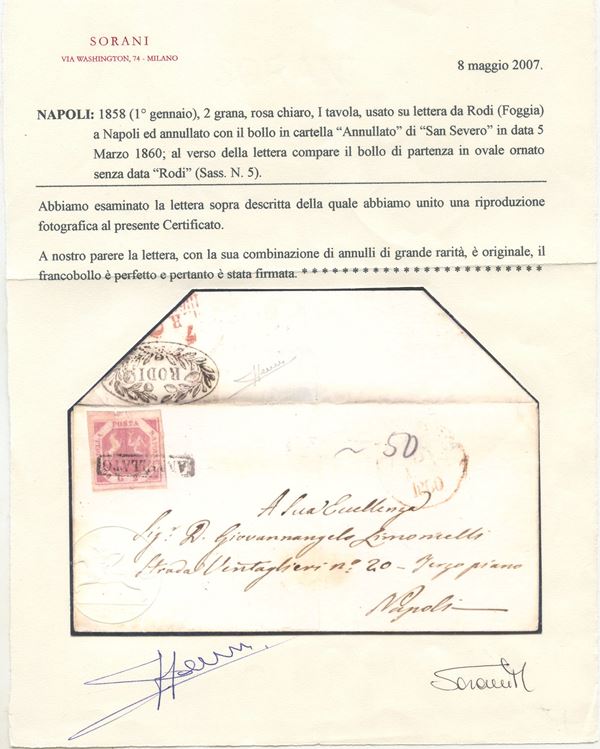 SORANI
VIA WASHINGTON, 74 - MILANO
8 maggio 2007.
NAPOLI: 1858 (1° gennaio), 2 grana, rosa chiaro, I tavola, usato su lettera da Rodi (Foggia)
a Napoli ed annullato con il bollo in cartella “Annullato” di “San Severo” in data 5
Marzo 1860; al verso della lettera compare il bollo di partenza in ovale ornato
senza data “Rodi” (Sass. N. 5).
Abbiamo esaminato la lettera sopra descritta della quale abbiamo unito una riproduzione
fotografica al presente Certificato.
A nostro parere la lettera, con la sua combinazione di annulli di grande rarità, è originale, il
francobollo è perfetto e pertanto è stata firmata. * * * * * * * * * * * * * * * * * * * * * * *
RODI
POSTA
ANNULLATO
~ 50
1860
A Sua Eccellenza
Sig.r D. Giovannangelo Limoncelli
Strada Ventaglieri n.° 20 - Terzo piano
Napoli
Sorani